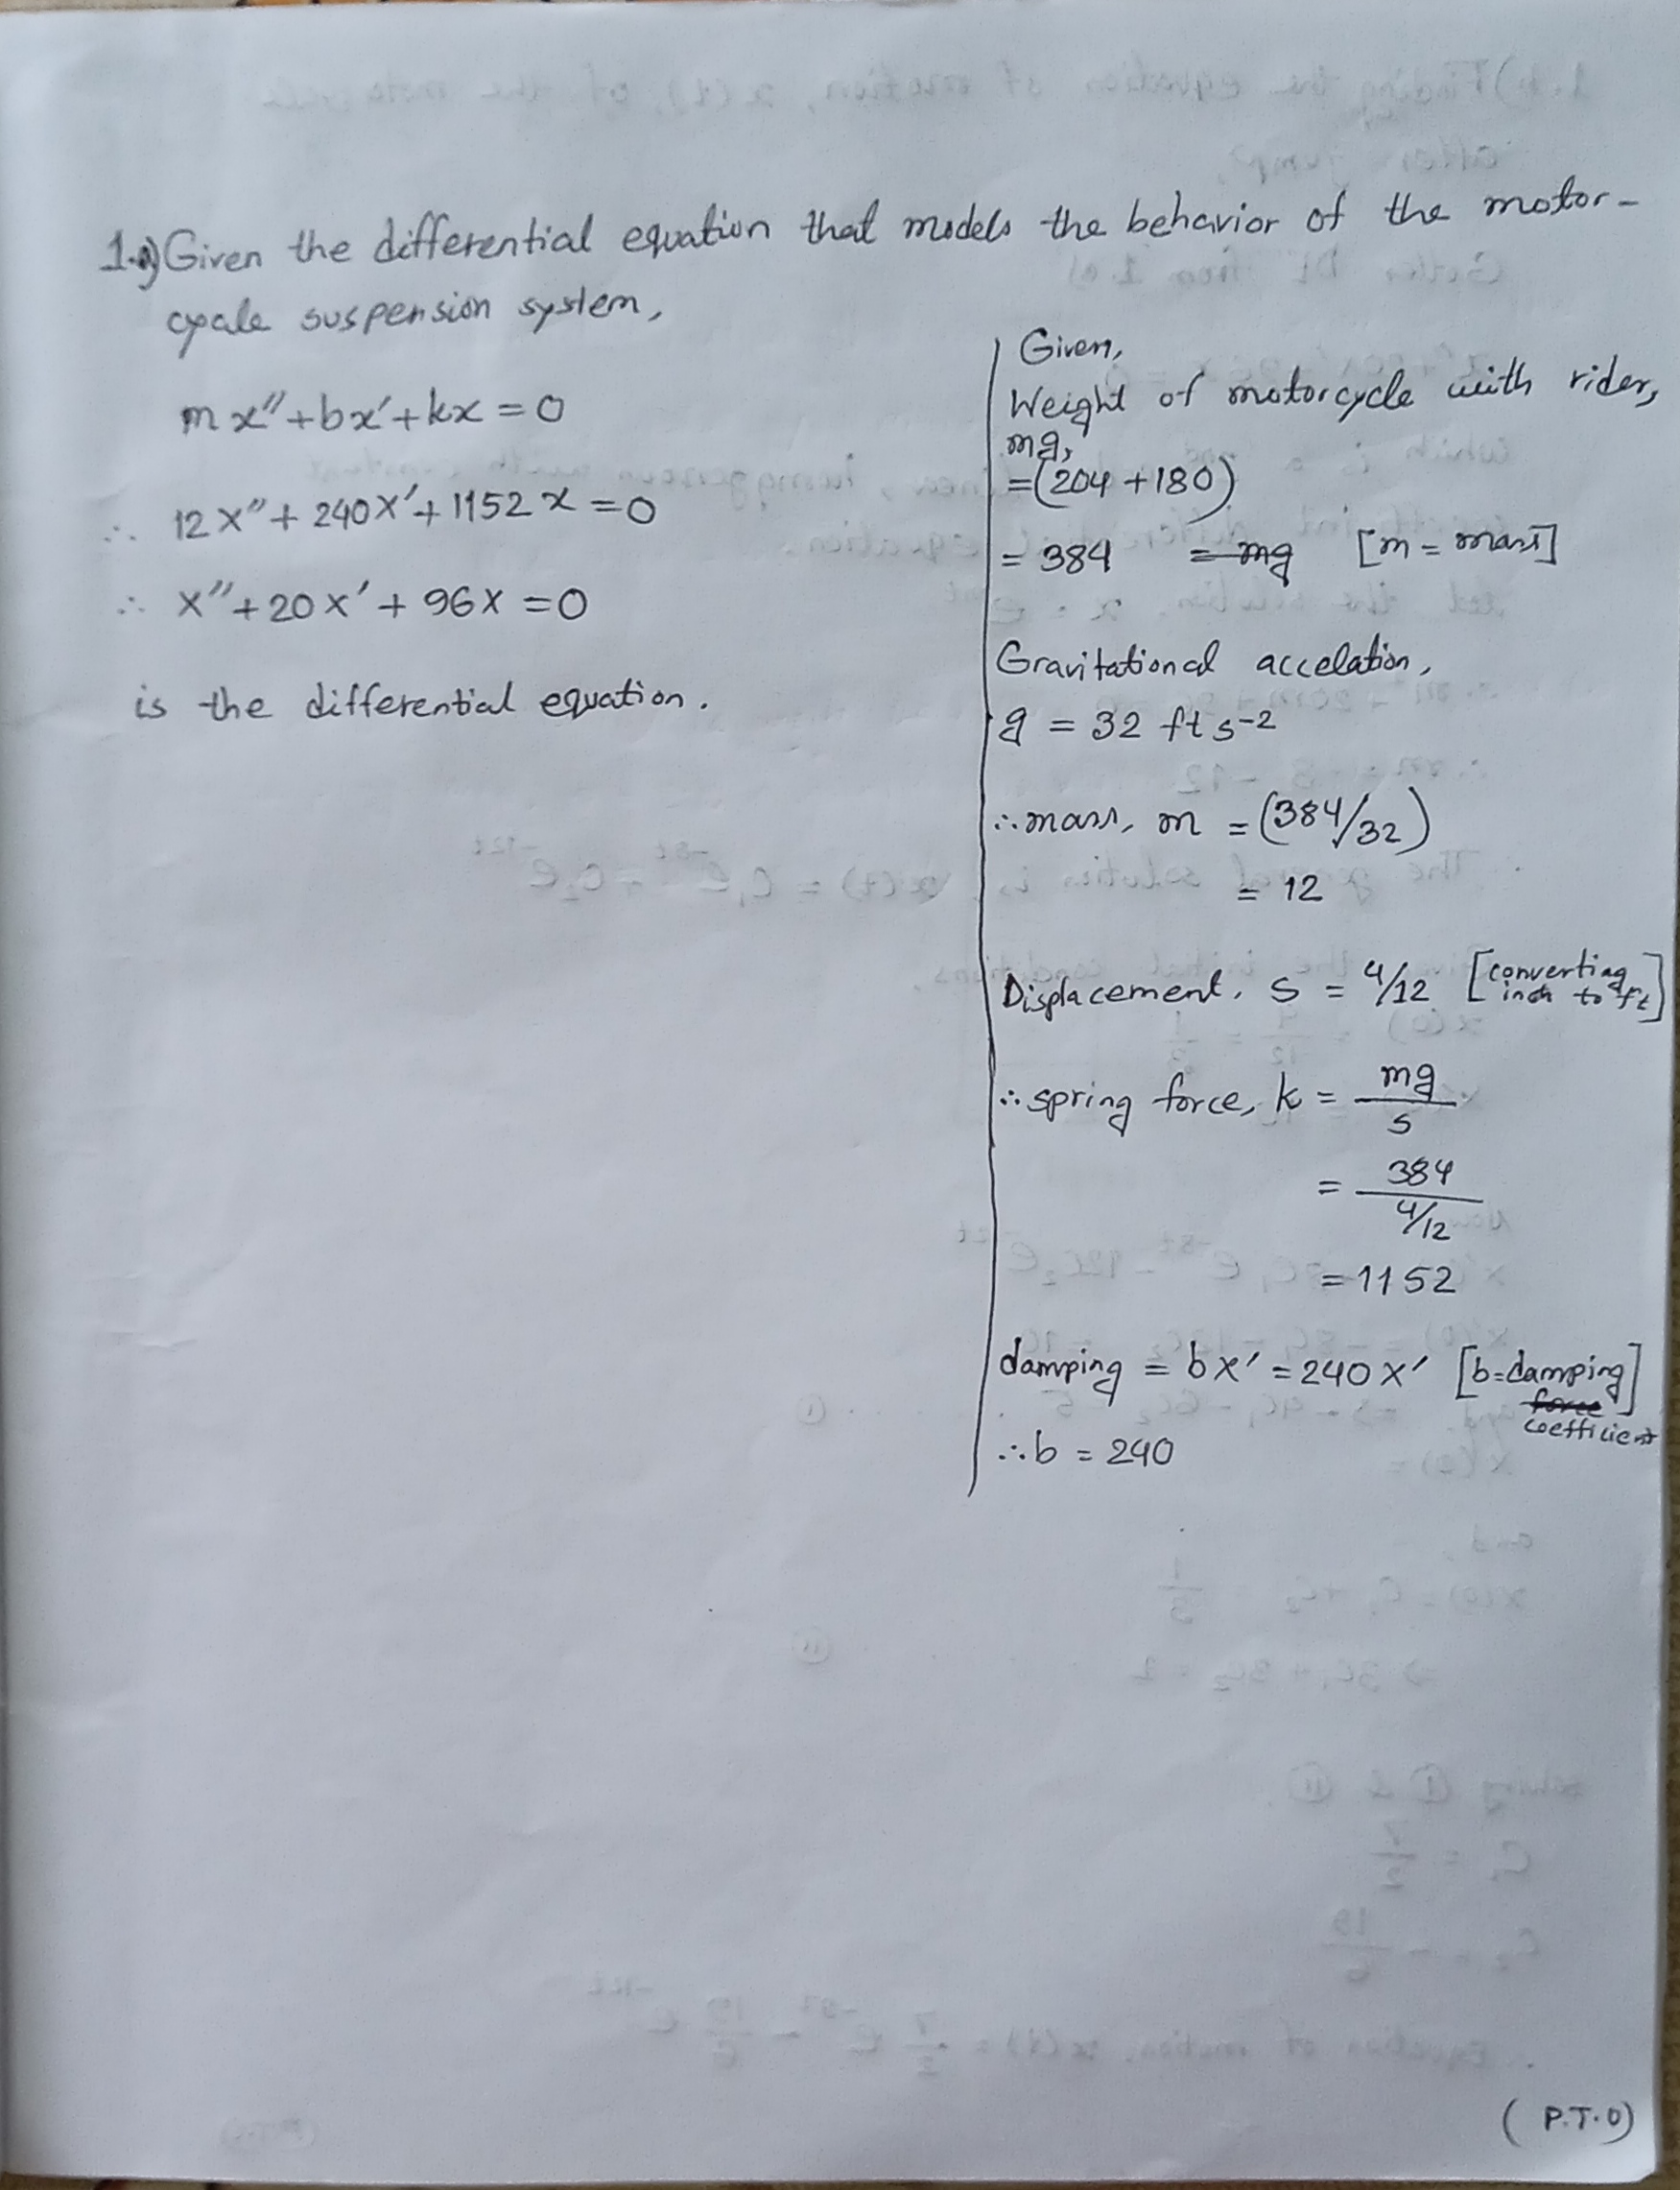 1.a) Given the differential equation that models the behavior of the motor-
cycle suspension system,
mx″+bx′+kx=0
∴ 12x″+240x′+1152x=0
∴ x″+20x′+96x=0
is the differential equation.
Given,
Weight of motorcycle with rider,
mg,
=(204+180)
= 384 = mg [m = mass]
Gravitational accelation,
g = 32 ft s-2
∴ mass, m = (384/32)
= 12
Displacement, s = 4/12 [converting
inch to ft]
∴ spring force, k = mg
s
= 384
4/12
= 1152
damping = bx′ = 240x′ [b=damping
force
coefficient]
∴ b = 240
(P.T.O)